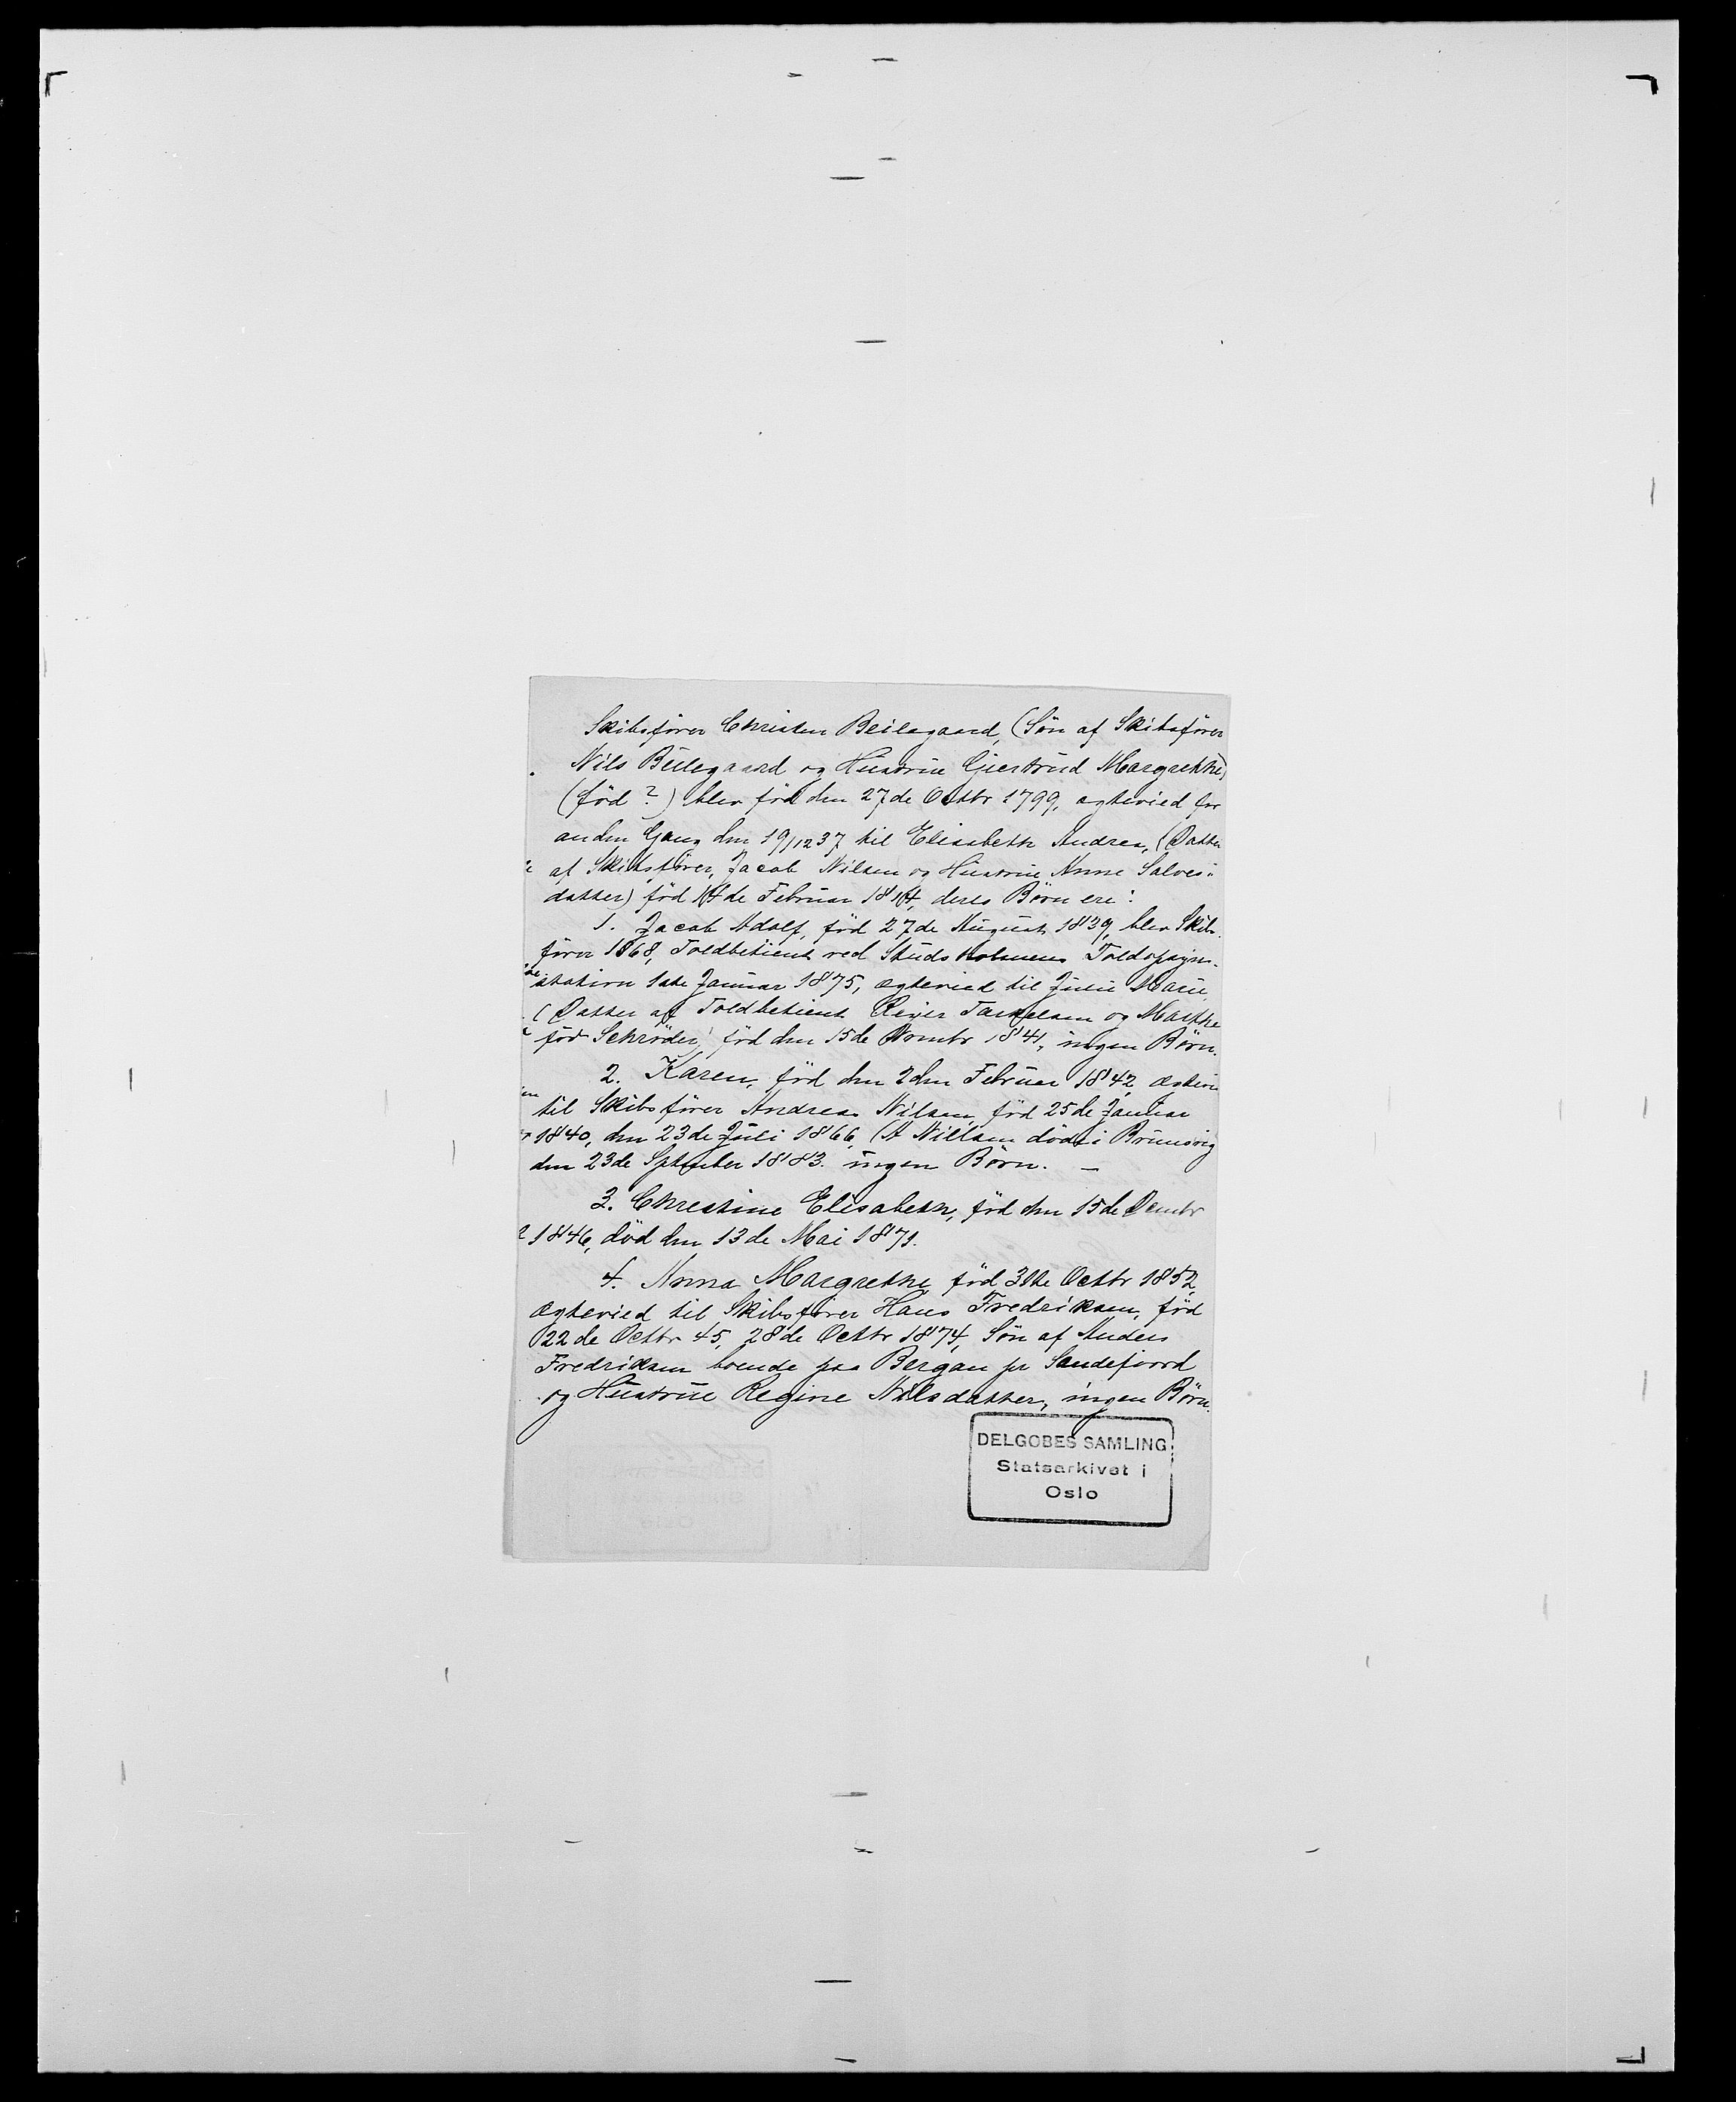 Skibsfører Christen Beilegaard, (Søn af Skibsfører
Nils Beilegaard og Hustrue Giertrud Margrethe)
(född ?) blev fød den 27de Octbr 1799, egtevied for
anden Gang den 19/12 37 til Elisabeth Andrea, (Datter
af Skibsfører, Jacob Nilsen og Hustrue Anne Salves-
datter) fød 14de Februar 1814, deres Børn ere:
1. Jacob Adolf, fød 27de August 1839, blev Skibs-
fører 1868, Toldbetient ved Studsholmens Toldopsyns-
station 1ste Januar 1875, egtevied til Julie Marie
(Datter af Toldbetient Reier Tarjelsen og Marthe
fød Schrøder) fød den 15de Novmbr 1841, ingen Børn.
2. Karen, fød den 2den Februar 1842
til Skibsfører Andreas Nilsen, fød 25de Januar
1840, den 23de Juli 1866, (A Nillsen døde i Brunsvig
den 23de Sptember 1883. ingen Børn. —
3. Christine Elisabeth, fød den 15de Decmbr
1846, død den 13de Mai 1871.
4. Anna Margrethe fød 31te Octbr 1852,
egtevied til Skibsfører Hans Fredriksen, fød
22de Octbr 45, 28de Octbr 1874, Søn af Anders
Fredriksen boende paa Bergan pr Sandefjord
og Hustrue Regine Nilsdatter, ingen Børn.
DELGOBES SAMLING
Statsarkivet i
Oslo